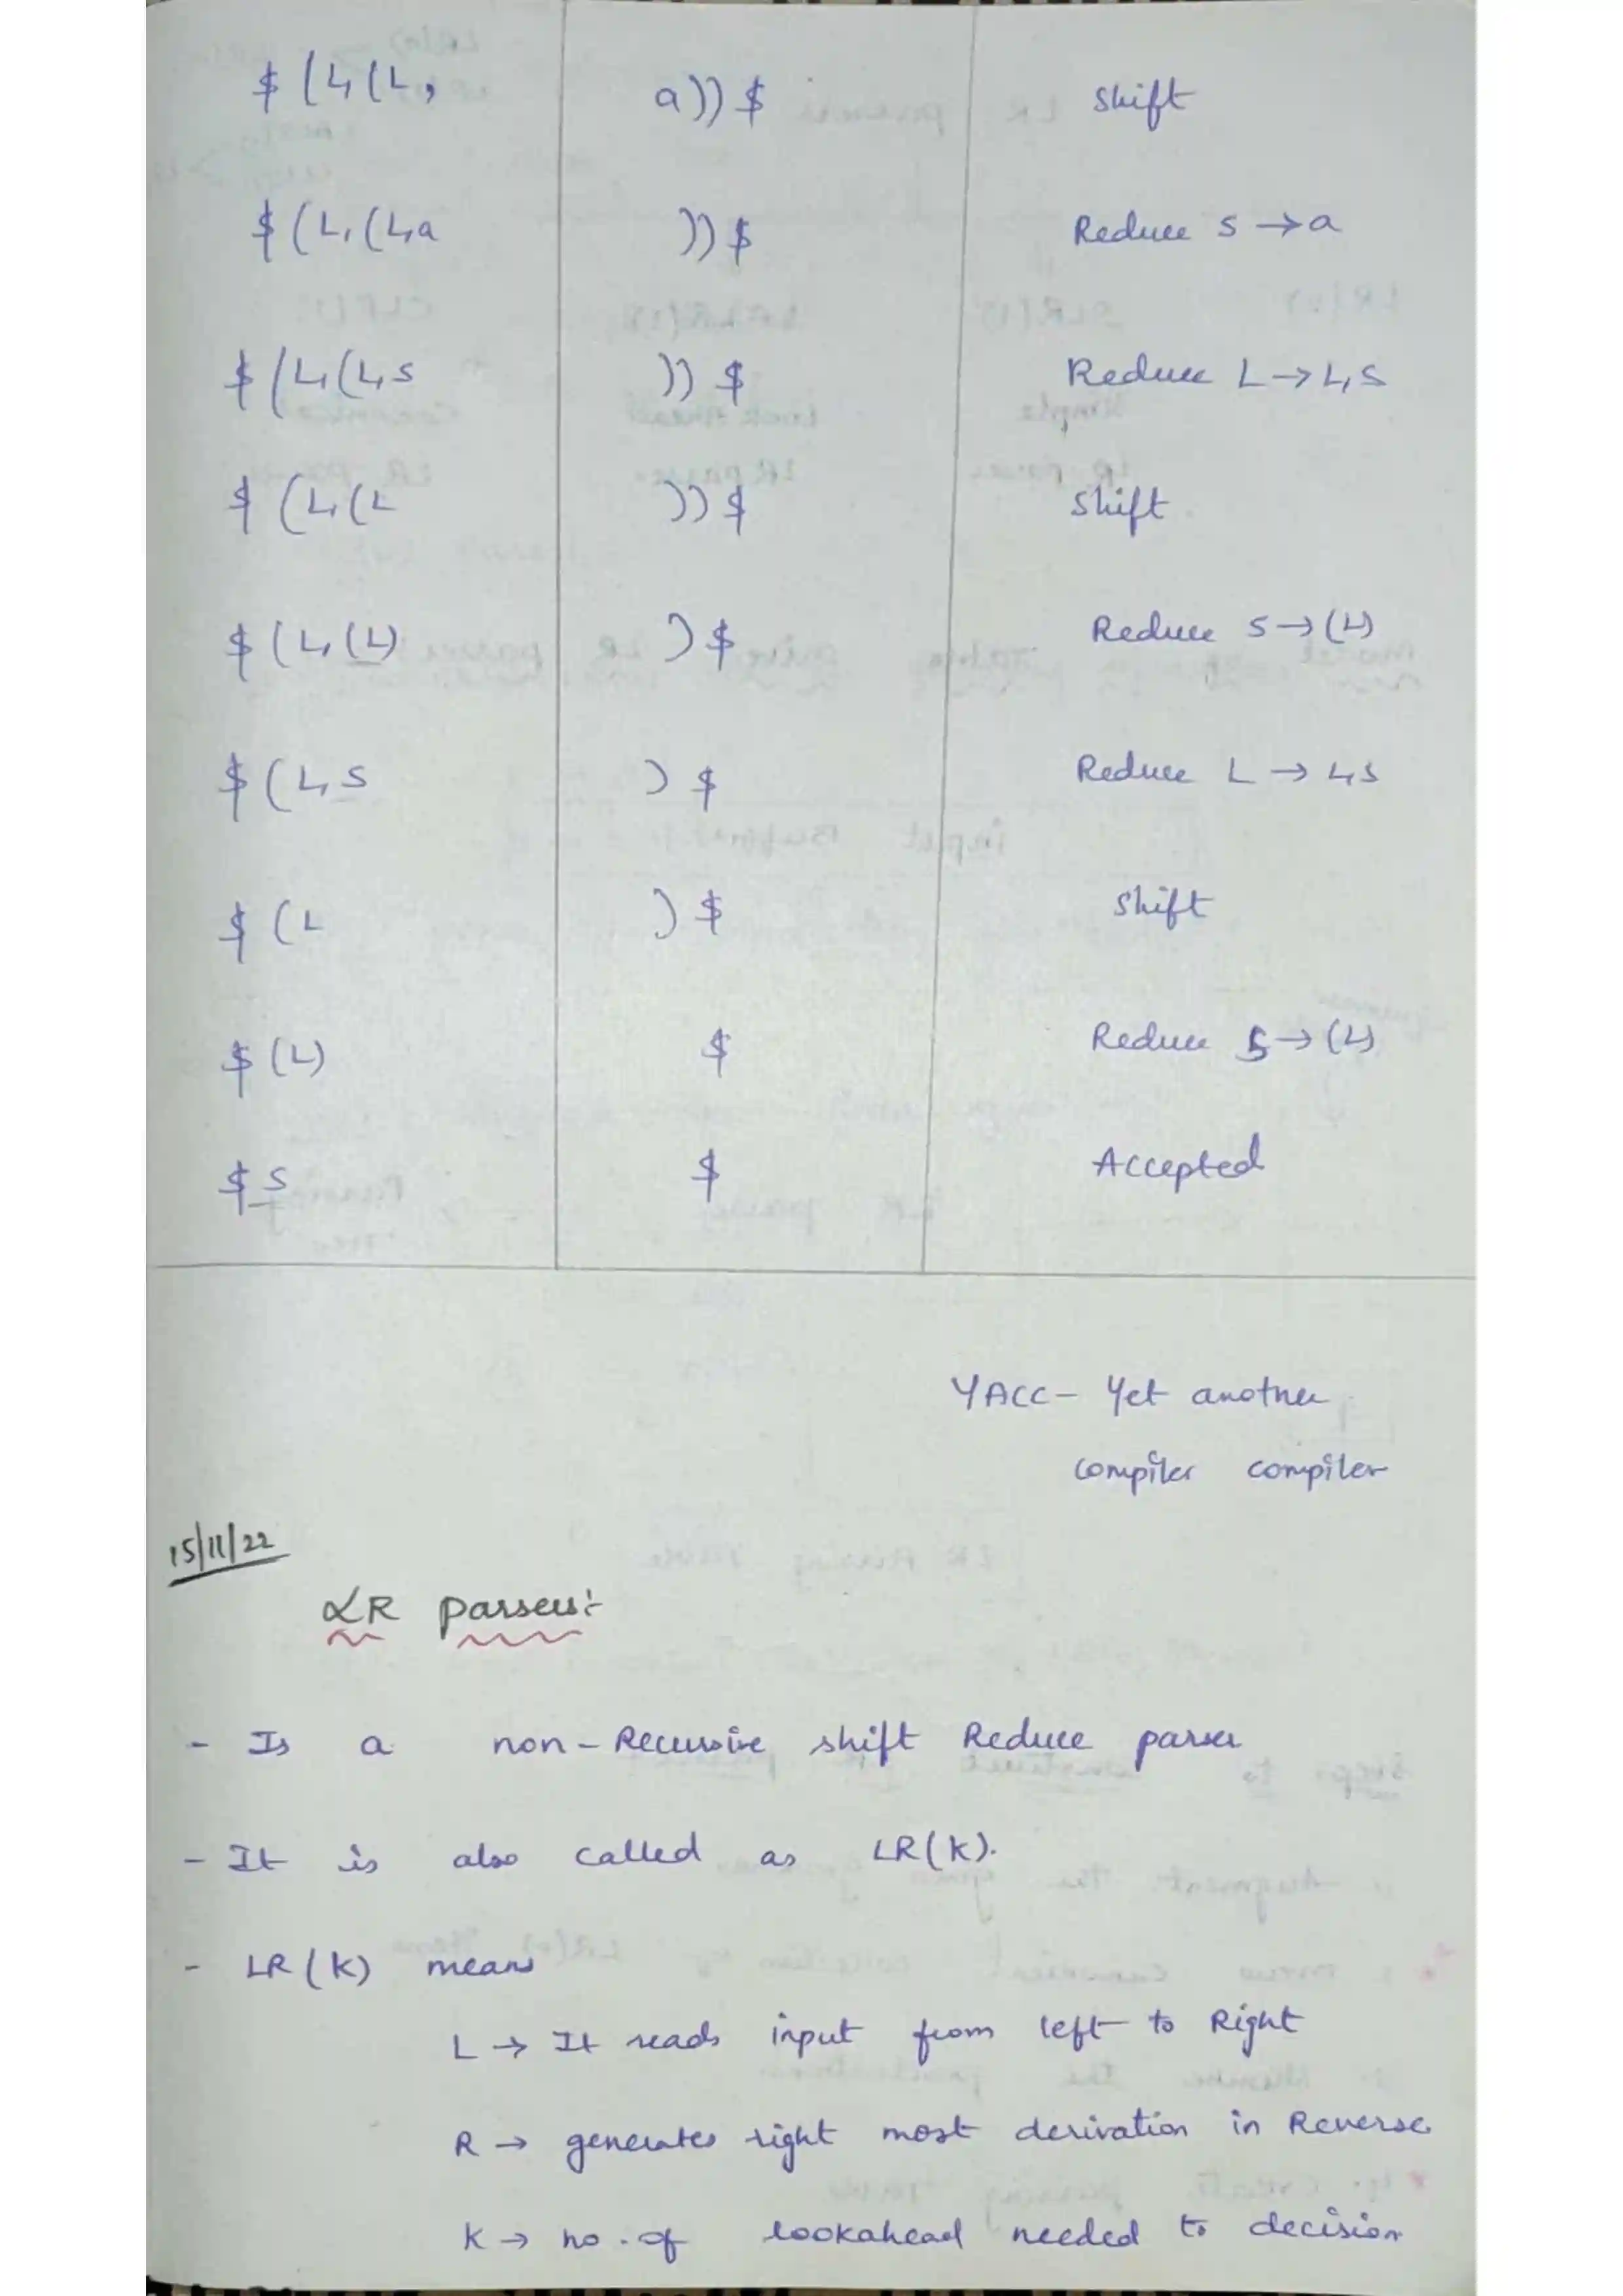 $ (L,(L, a))$ Shift
$ (L,(L,a ))$ Reduce S → a
$ (L,(L,S ))$ Reduce L → L,S
$ (L,(L ))$ Shift
$ (L,(L) )$ Reduce S → (L)
$ (L,S )$ Reduce L → L,S
$ (L )$ Shift
$ (L) $ Reduce S → (L)
$ S $ Accepted
YACC - Yet another
compiler compiler
15/11/22
LR Parsers:-
- Is a non-Recursive shift Reduce parser
- It is also called as LR(K).
- LR(K) means
L → It reads input from left to Right
R → generates right most derivation in Reverse
K → no. of lookahead needed to decision